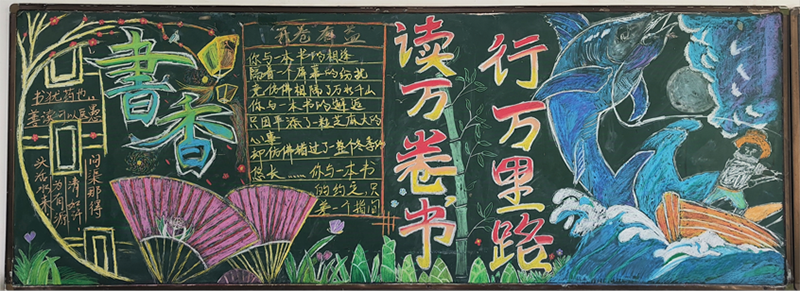 書香
书犹药也，
善读可以医愚
问渠那得
清如许！
为有源
头活水来
开卷有益
你与一本书的相逢
隔着一个屏幕的纷扰
竟仿佛相隔了万水千山
你与一本书的邂逅
只因平添了一粒芝麻大的
心事
却仿佛错过了一整个冬季的
悠长……你与一本书
的约定，只
差一个指间
读万卷书
行万里路